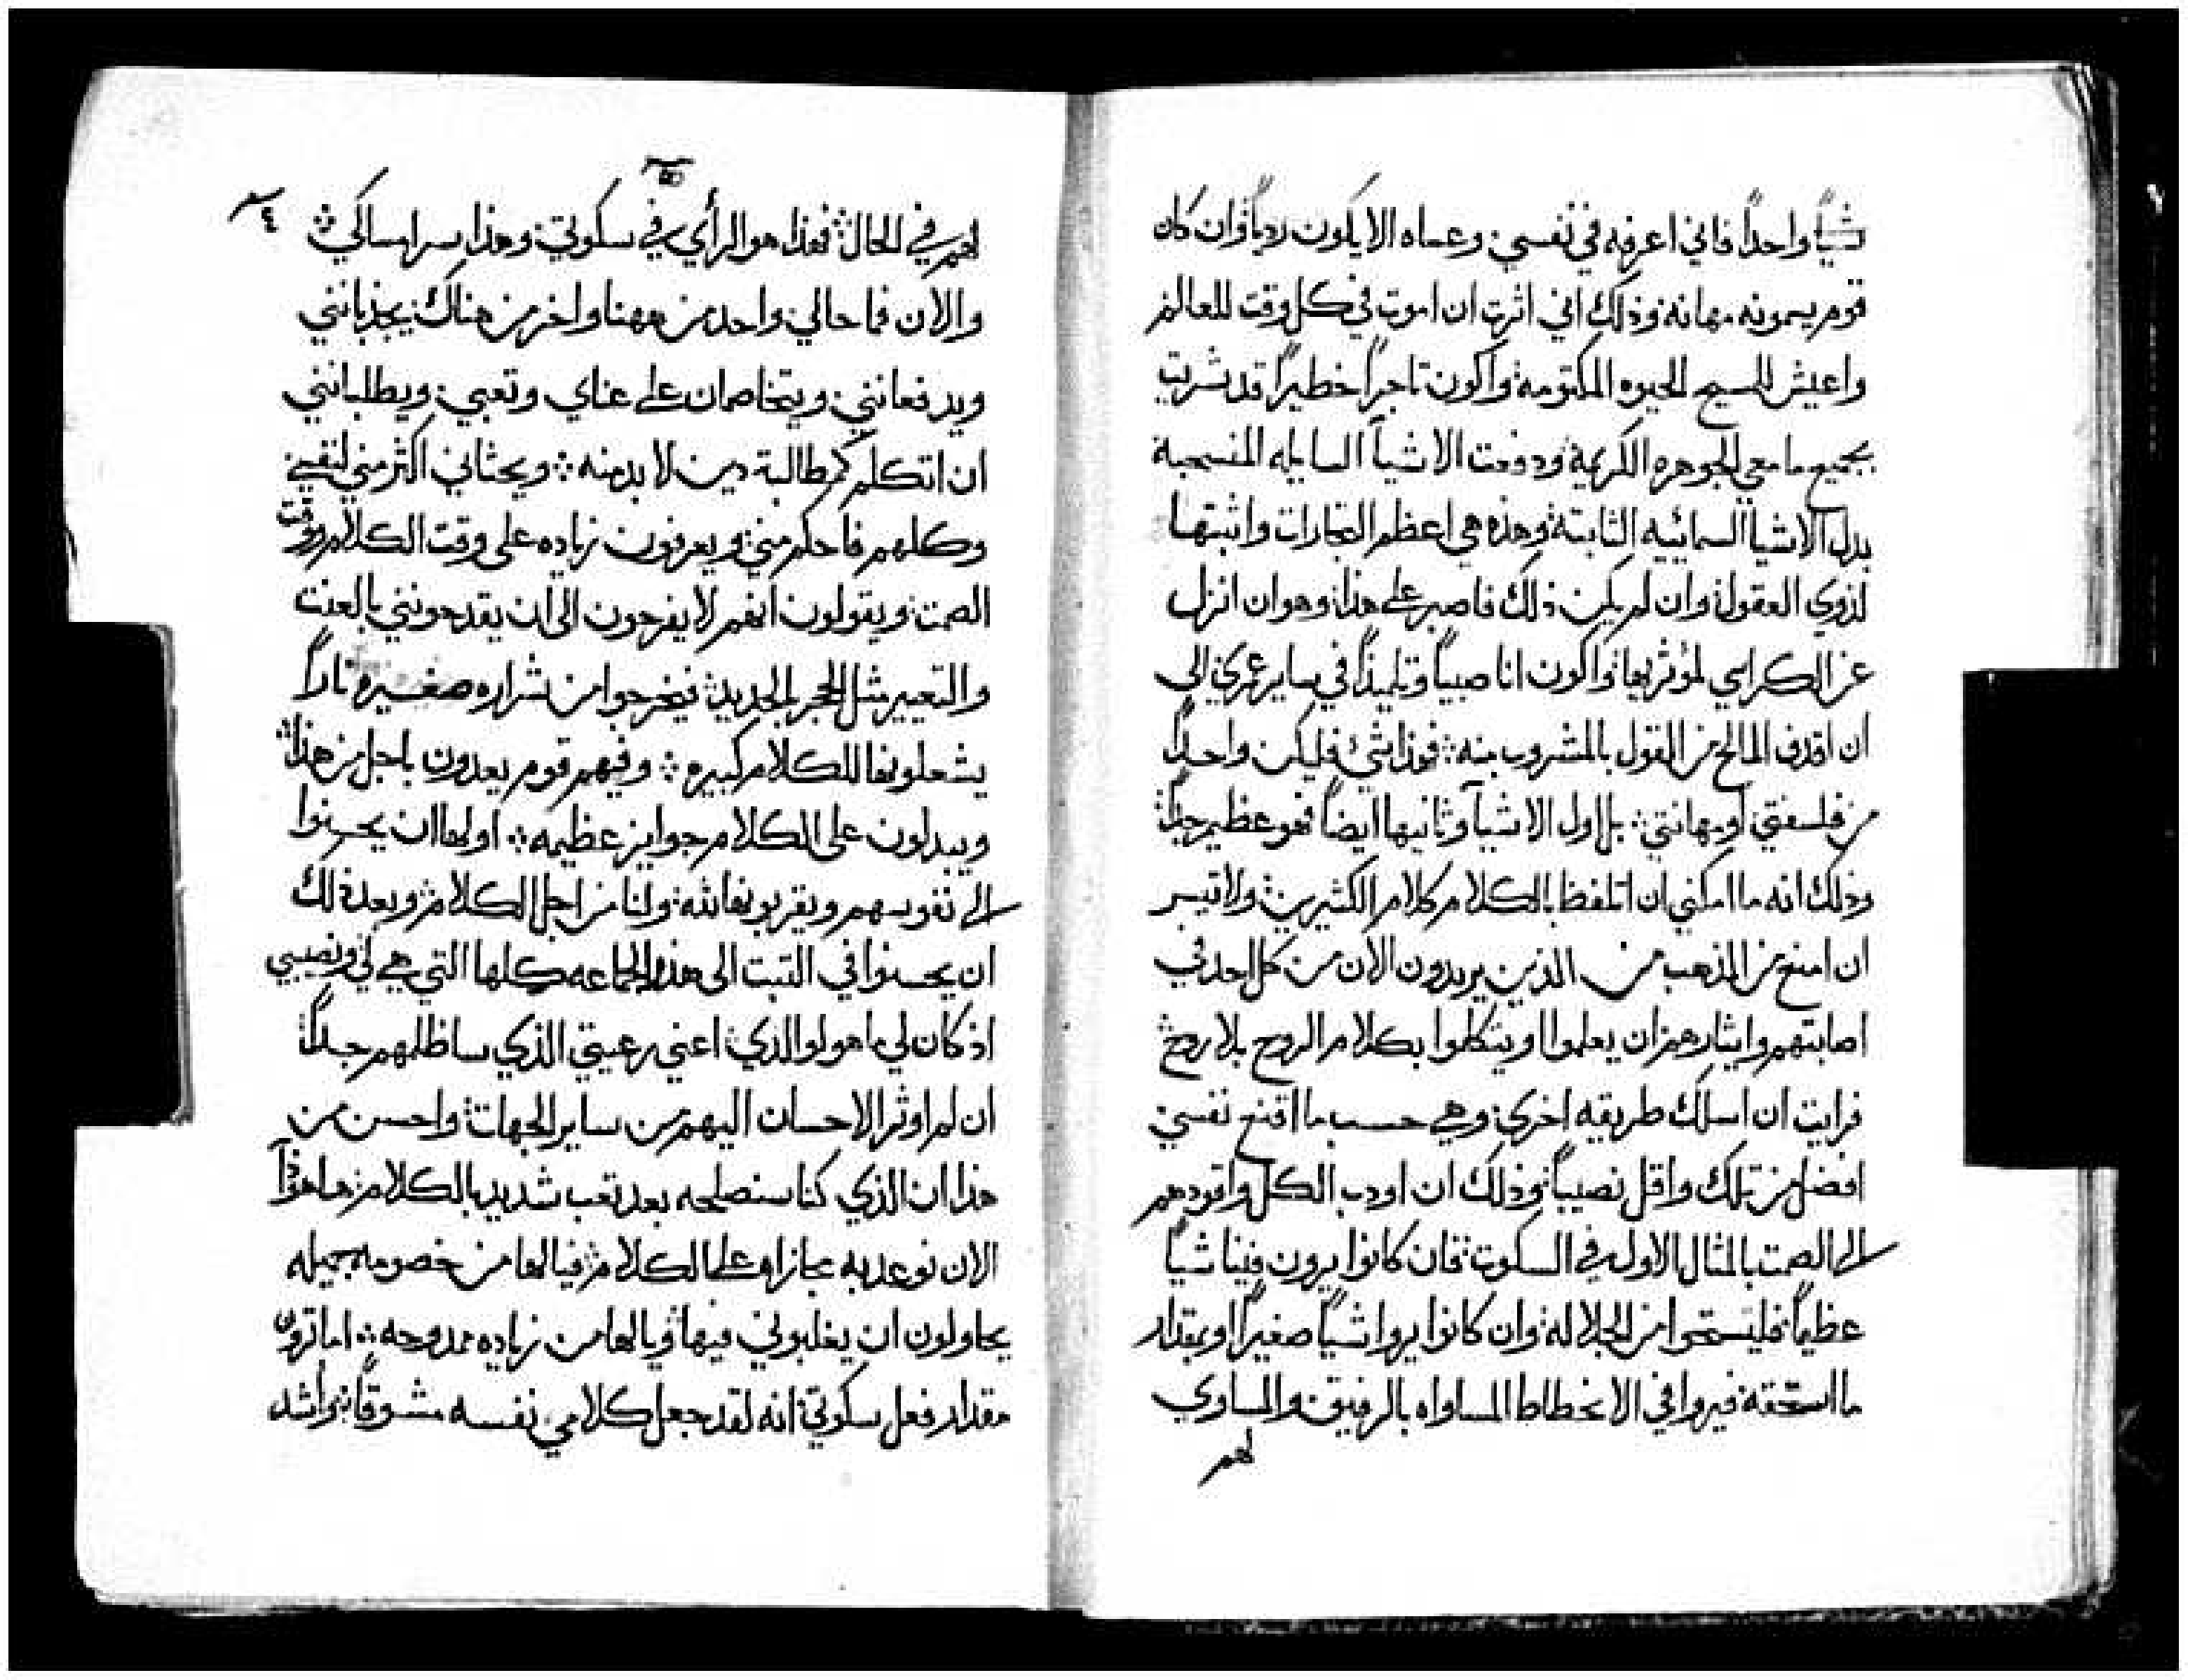 شياً واحداً فاني اعرفه في نفسي وعساه الا يكون ردياً وان كان
قوم يسمونه مهانه وذلك اني اثرت ان اموت في كل وقت للعالم
واعيش للمسيح الحيوه المكتومة واكون تاجراً خطيراً قد شريت
بجميع ما معي الجوهره الكريمة ودفعت الاشيآ السايله المنسحبة
بدل الاشيا السمائيه الثابتة وهذه هي اعظم التجارات واثبتها
لذوي العقول وان لم يكن ذلك فاصبر على هذا وهو ان انزل
عن الكراسي لمؤثريها واكون انا صبياً وتلميذاً في ساير عمري الى
ان اقذف المالح من القول بالمشروب منه فهذا شيء فليكن واحداً
من فلسفتي او مهانتي بل اول الاشيآ وثانيها ايضاً فهو عظيم جداً
وذلك انه ما امكني ان اتلفظ بالكلام كلام الكثيرين ولا تيسر
ان امنع من المذهب من الذين يريدون الان من كل احد في
اصابتهم وايثارهم ان يعلموا او يتكلموا بكلام الروح بلا روح
فرايت ان اسلك طريقه اخرى وهي حسب ما اقنع نفسي
افضل من تلك واقل نصيباً وذلك ان اودب الكل واقودهم
الى الصمت بالمثال الاول في السكوت فان كانوا يرون فينا شياً
عظيماً فليستحوا من الجلاله وان كانوا يروا شياً صغيراً او بمقدار
ما استحقه فيروا في الانحطاط المساواه بالرفيق والمساوي
لهم
٢٤
لهم في الحال فهذا هو الراي في سكوتي وهذا سر امساكي
والان فما حالي واحد من ههنا واخر من هناك يجذبانني
ويدفعانني ويتخاصمان على عناي وتعبي ويطلبانني
ان اتكلم كمطالبة دين لا بد منه ويحثاني اكثر مني لنفسي
وكلهم فاحكم مني ويعرفون زياده على وقت الكلام ووقت
الصمت ويقولون انهم لا يفرجون الى ان يقدحونني بالعنت
والتعيير مثل الحجر بالحديد فيخرجوا من شراره صغيره ناراً
يشعلونها للكلام كبيره وفيهم قوم يعدون باجل من هذا
ويبدلون على الكلام جوايز عظيمه اولها ان يحسنوا
الى نفوسهم ويقربونها لله ولنا من اجل الكلام وبعد ذلك
ان يحسنوا في التبت الى هذه الجماعه كلها التي هي لي ونصيبي
اذ كان لي ما هو لوالدي اعني رعيتي الذي ساظلمهم جداً
ان لم اوثر الاحسان اليهم من ساير الجهات واحسن من
هذا ان الذي كنا سنصلحه بعد تعب شديد بالكلام ها هوذا
الان نوعد به مجازاه على الكلام فيالها من خصومه جميله
يحاولون ان يغلبوني فيها ويالها من زياده ممدوحه اما ترون
مقدار فعل سكوتي انه لقد جعل كلامي نفسه مشوقاً اشد